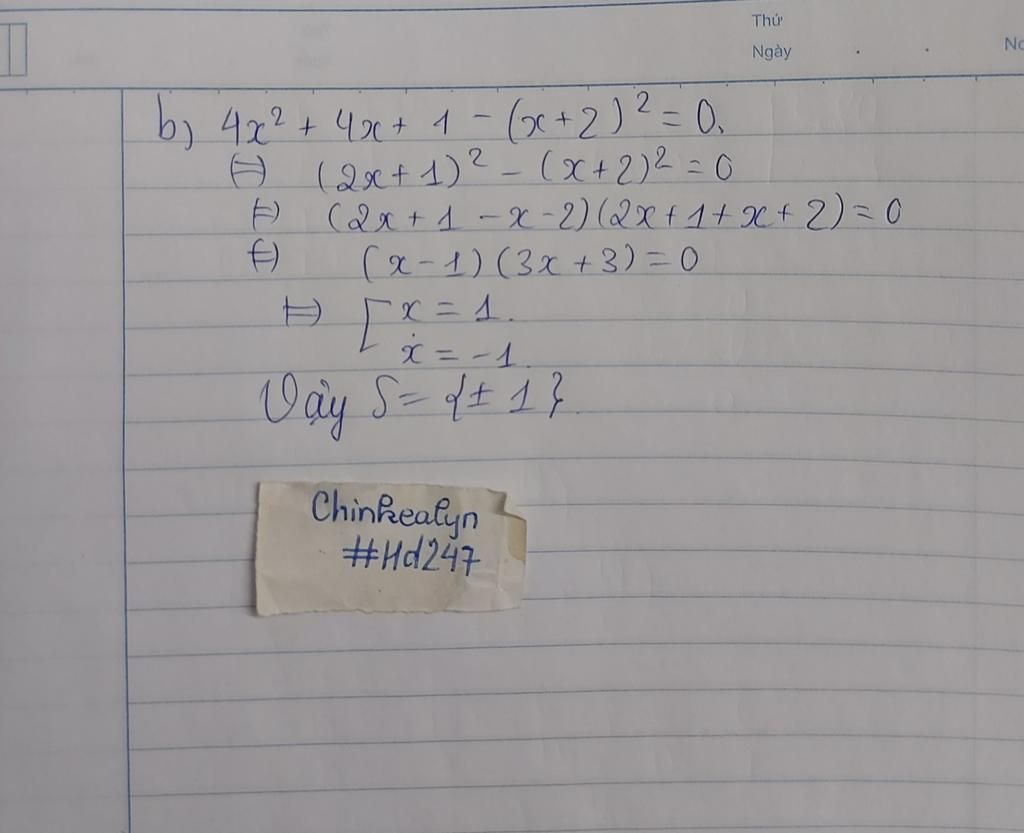 Thứ
Ngày
No
b) 4x² + 4x + 1 - (x+2)² = 0.
(=) (2x+1)² - (x+2)² = 0
(=) (2x+1-x-2)(2x+1+x+2) = 0
(=) (x-1)(3x+3) = 0
(=) [ x = 1.
x = -1.
Vậy S = {±1}.
Chinhealyn
#Hd247